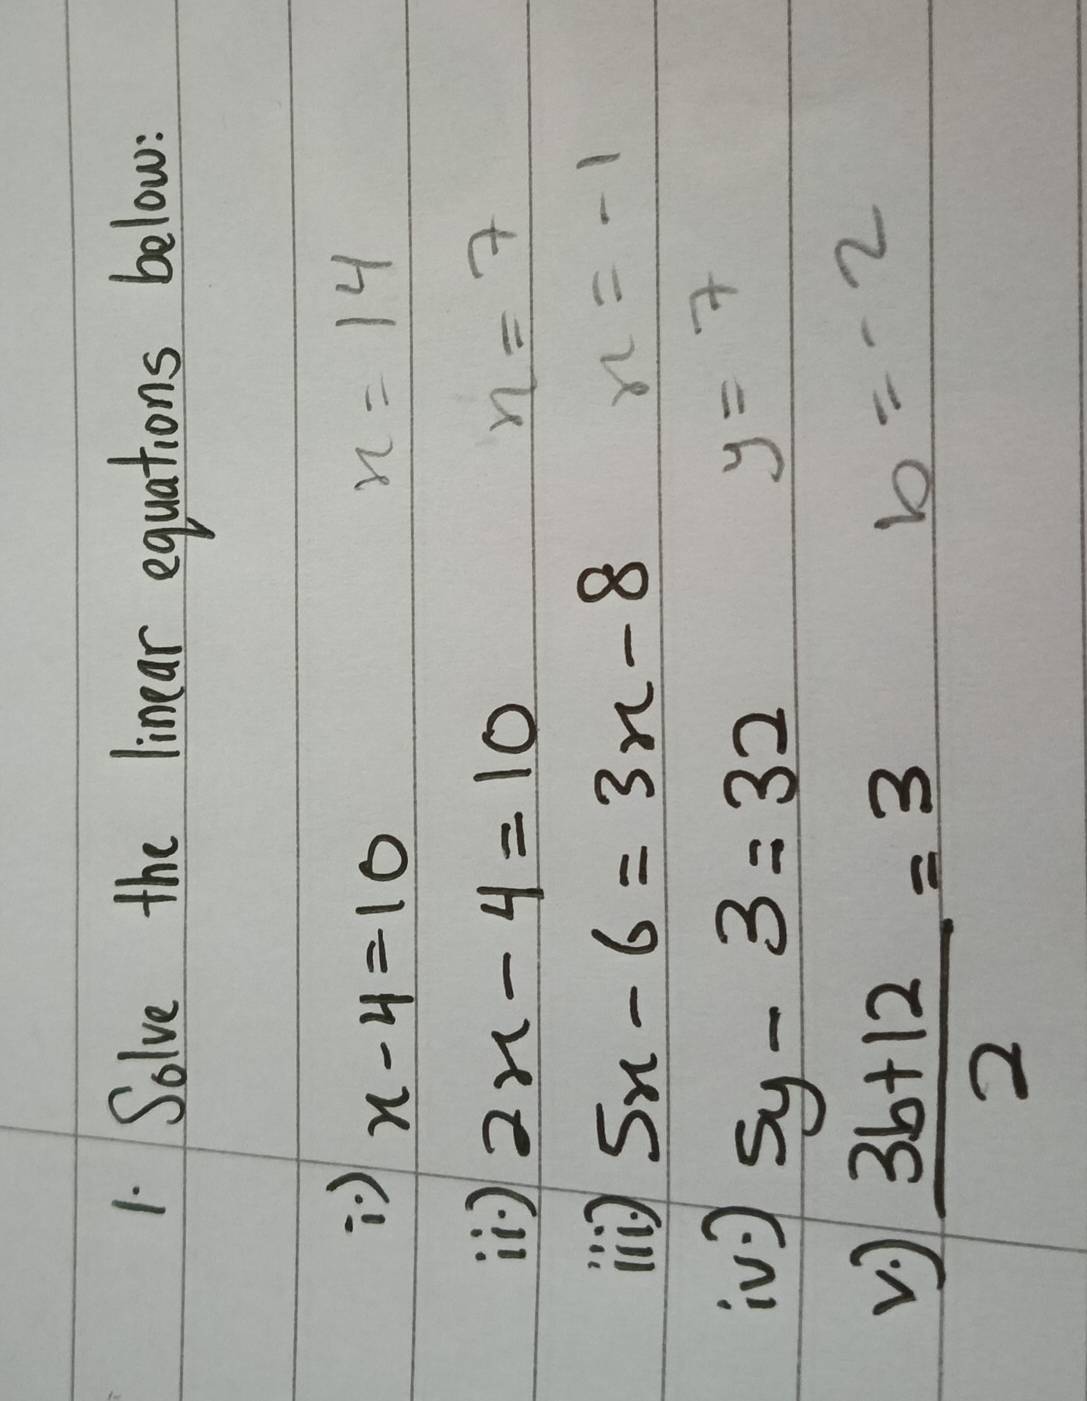 1. Solve the linear equations below:
i.) x - 4 = 10 x = 14
ii.) 2x - 4 = 10 x = 7
iii.) 5x - 6 = 3x - 8 x = -1
iv.) 5y - 3 = 32 y = 7
v.) 3b+12 = 3 b = -2
2